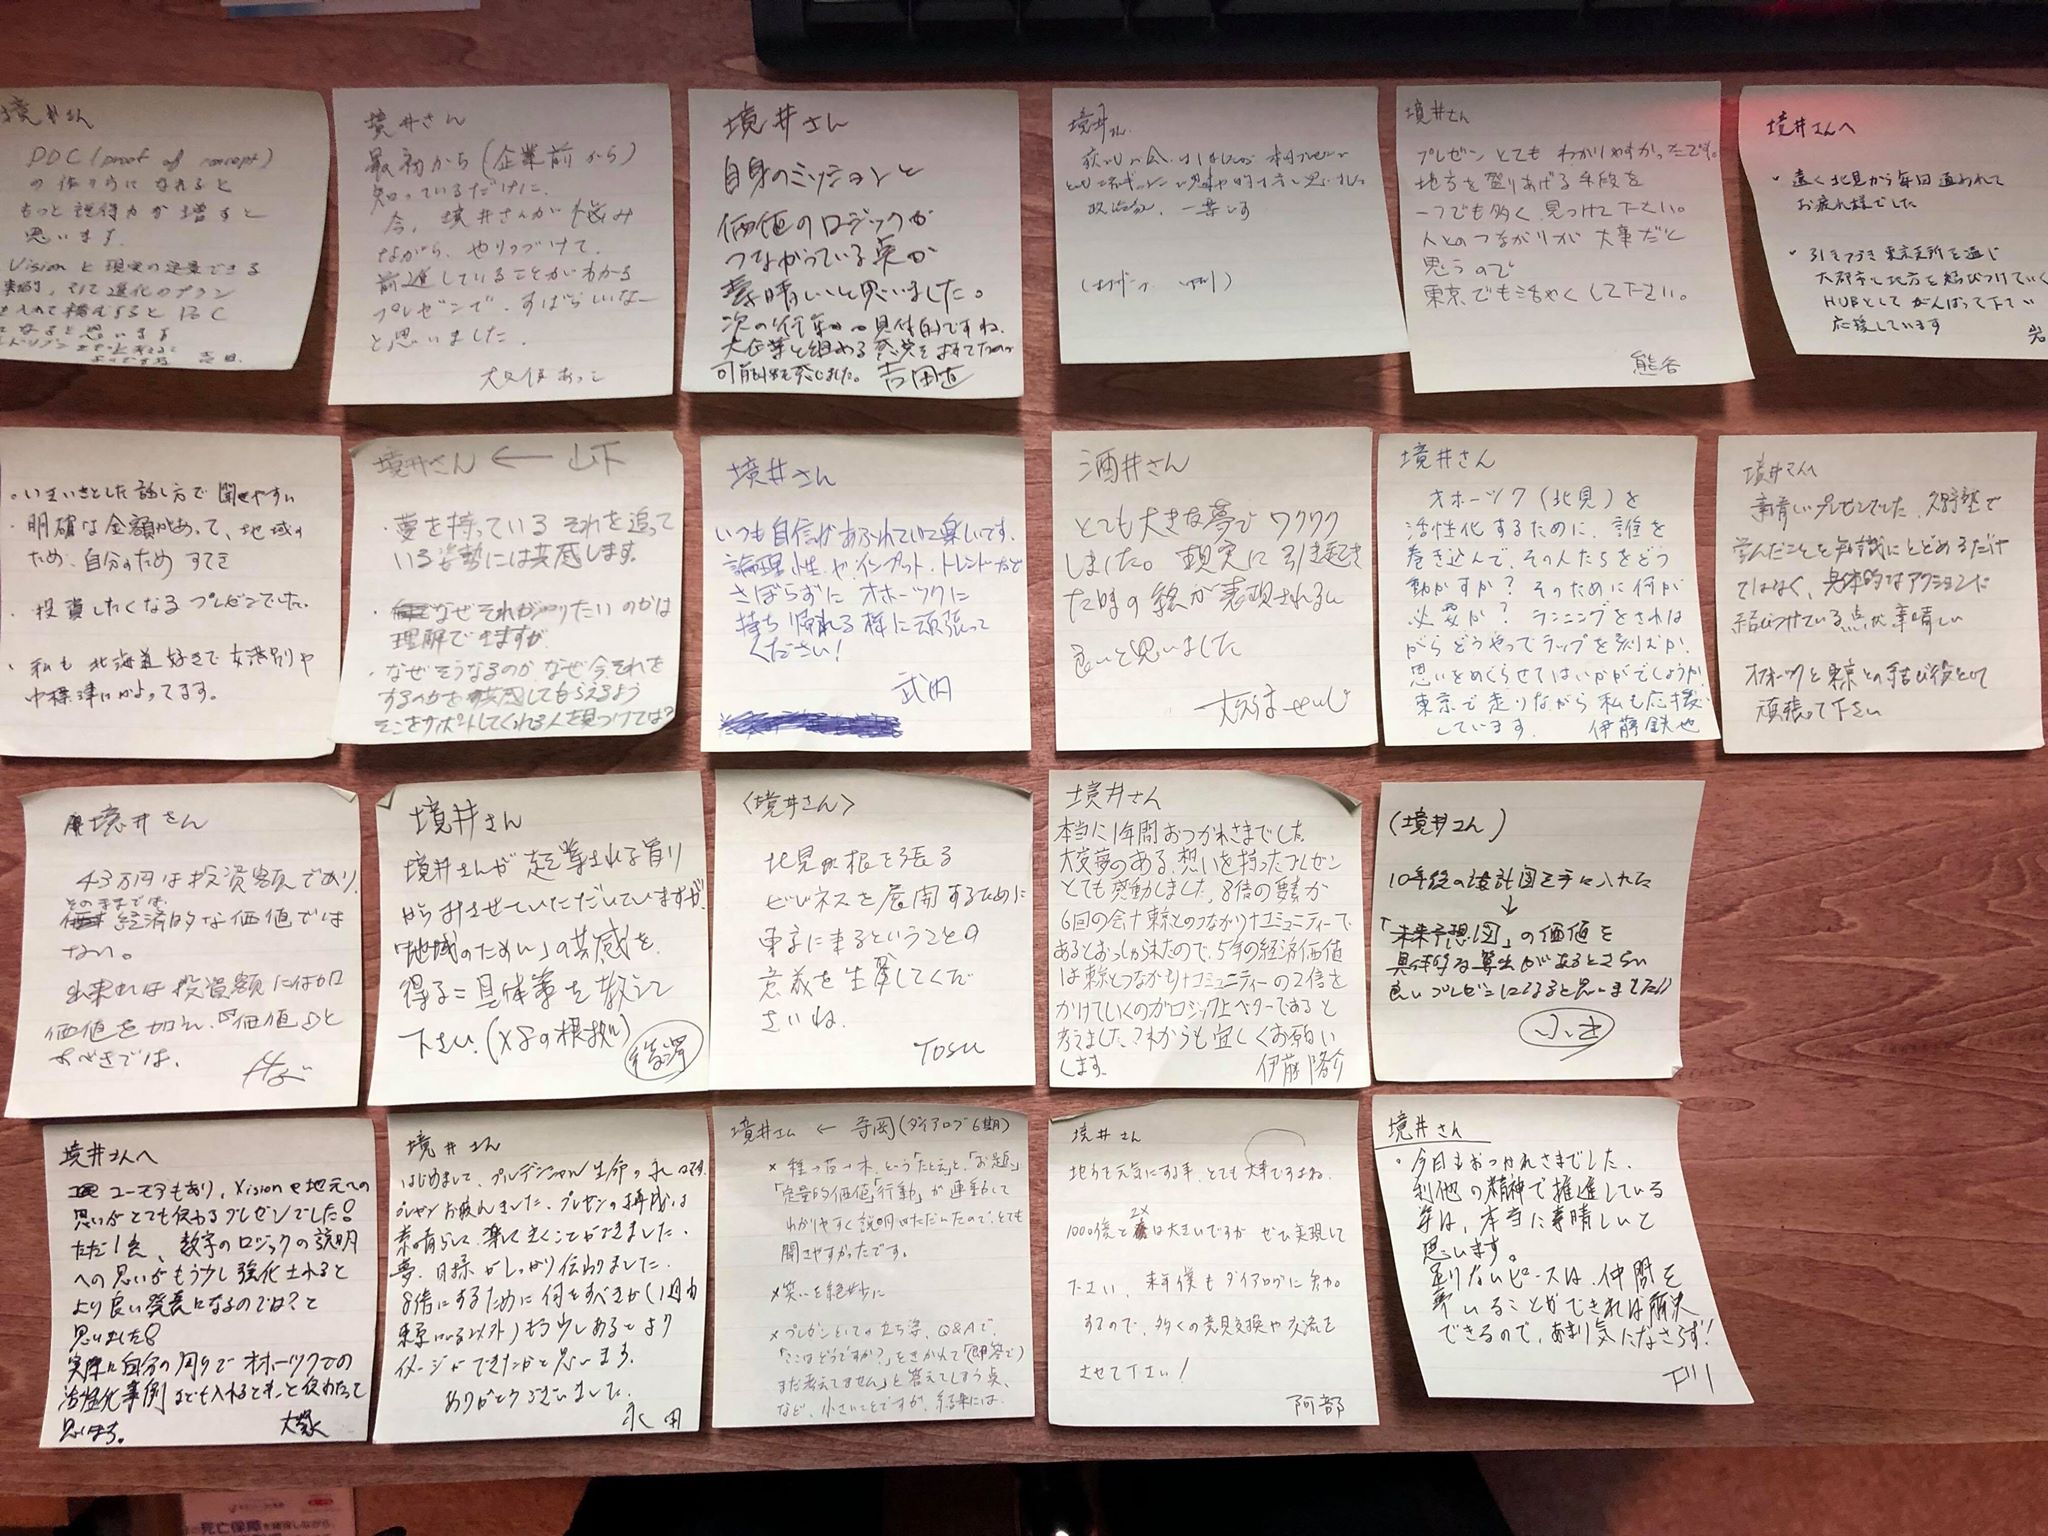 境井さん
POC (proof of concept)
の作り方になれると
もっと説得力が増すと
思います。
Visionと現実の定量できる
思います
境井さん
最初から(企業前から)
知っているだけに、
今、境井さんが悩み
ながら、やりつづけて、
前進していることがわかる
プレゼンで、すばらしいなー
と思いました。
境井さん
自身のミッションと
価値のロジックが
つながっている点が
素晴しいと思いました。
次の行動の具体的ですね、
大企業と組める発想を
可能性を感じました。 吉田
境井さん
境井さん
プレゼンとてもわかりやすかったです。
地方を盛りあげる手段を
一つでも多く、見つけて下さい。
人とのつながりが大事だと
思うので
東京でも活やくして下さい。
熊谷
境井さんへ
・遠く北見から毎回通われて
お疲れ様でした
・引きつづき東京支所を通じ
大都市と地方を結びつけていく
HUBとしてがんばって下さい
応援しています
・いきいきとした話し方で聞きやすい
・明確な金額があって、地域の
ため、自分のため すてき
・投資したくなるプレゼンでした。
・私も北海道好きで女満別や
中標津にかよってます。
境井さん ← 山下
・夢を持っている それを追って
いる姿勢には共感します。
・なぜそれがやりたいのかは
理解できますが
・なぜそうなるのか、なぜ今それを
するのかを共感してもらえるよう
そこをサポートしてくれる人を見つけては?
境井さん
いつも自信があふれていて楽しいです。
論理性や、インプット、トレンドなど
さぼらずに オホーツクに
持ち帰れる様に頑張って
ください!
武内
酒井さん
とても大きな夢でワクワク
しました。現実に引き起き
た時の絵が表現されると
良いと思いました
境井さん
オホーツク(北見)を
活性化するために、誰を
巻き込んで、その人たちをどう
動かすか?そのために何が
必要か?ランニングをされな
がらどうやってラップを刻むか、
思いをめぐらせてはいかがでしょうか
東京で走りながら私も応援
しています。 伊藤鉄也
境井さんへ
素晴しいプレゼンでした、
学んだことを知識にとどめるだけ
ではなく、具体的なアクションに
結びつけている点が素晴しい
オホーツクと東京との結び役として
頑張って下さい
境井さん
43万円は投資額であり、
そのままでは、
経済的な価値では
ない。
出来れば投資額に付加
価値を加え、『価値』と
すべきでは。
境井さん
境井さんが起業される前
からみさせていただいていますが、
「地域のために」の共感を
得る具体策を教えて
下さい。(×8の根拠)
〈境井さん〉
北見が根を張る
ビジネスを展開するために
東京に来るということの
意義を生かしてくだ
さいね。
Tosu
境井さん
本当に1年間おつかれさまでした。
大変夢のある、想いを持ったプレゼン
とても感動しました。8倍の要素が
6回の会+東京とのつながり+コミュニティーで
あるとおっしゃられたので、5年の経済価値
は東京とつながり+コミュニティーの2倍を
かけていくのがロジック上ベターであると
考えました。これからも宜しくお願い
します。 伊藤隆介
(境井さん)
10年後の設計図を手に入れたら
↓
「未来予想図」の価値を
具体的な算出があるとさらに
良いプレゼンになると思いました!!
境井さんへ
ユーモアもあり、Visionや地元への
思いがとても伝わるプレゼンでした!
ただ1点、数字のロジックの説明
への思いがもう少し強化されると
より良い発表になるのでは?と
思いました!
実際に自分の周りでオホーツクでの
活性化事例なども入れるともっと伝わると
思います。 大塚
境井さん
はじめまして、プルデンシャル生命の永田です。
プレゼンお疲れました。プレゼンの構成は
素晴らしく、楽しく聞くことができました。
夢、目標がしっかり伝わりました。
8倍にするために何をすべきか(1週間
東京にいる以外)もう少しあるとより
イメージができたかと思います。
ありがとうございました。
永田
境井さん ← 寺岡(ダイアログ6期)
×種→苗→木、という「たとえ」と、「お題」
「定量的価値」「行動」が連動して
わかりやすく説明いただいたので、とても
聞きやすかったです。
×笑いを絶妙に
×プレゼンとしての立ち姿、Q&Aで、
「ここはどうですか?」をきかれて(即答で)
まだ考えてません」と答えてしまう点、
など、小さいことですが、結果には、
境井さん
地方を元気にする事、とても大事ですよね。
1000倍と2×は大きいですが ぜひ実現して
下さい、来年僕もダイアログに参加
するので、多くの意見交換や交流を
させて下さい!
阿部
境井さん
・今日もおつかれさまでした、
利他の精神で推進している
姿は、本当に素晴しいと
思います。
足りないピースは、仲間を
率いることができれば解決
できるので、あまり気になさらず!
戸川
死亡保障を確保しながら、